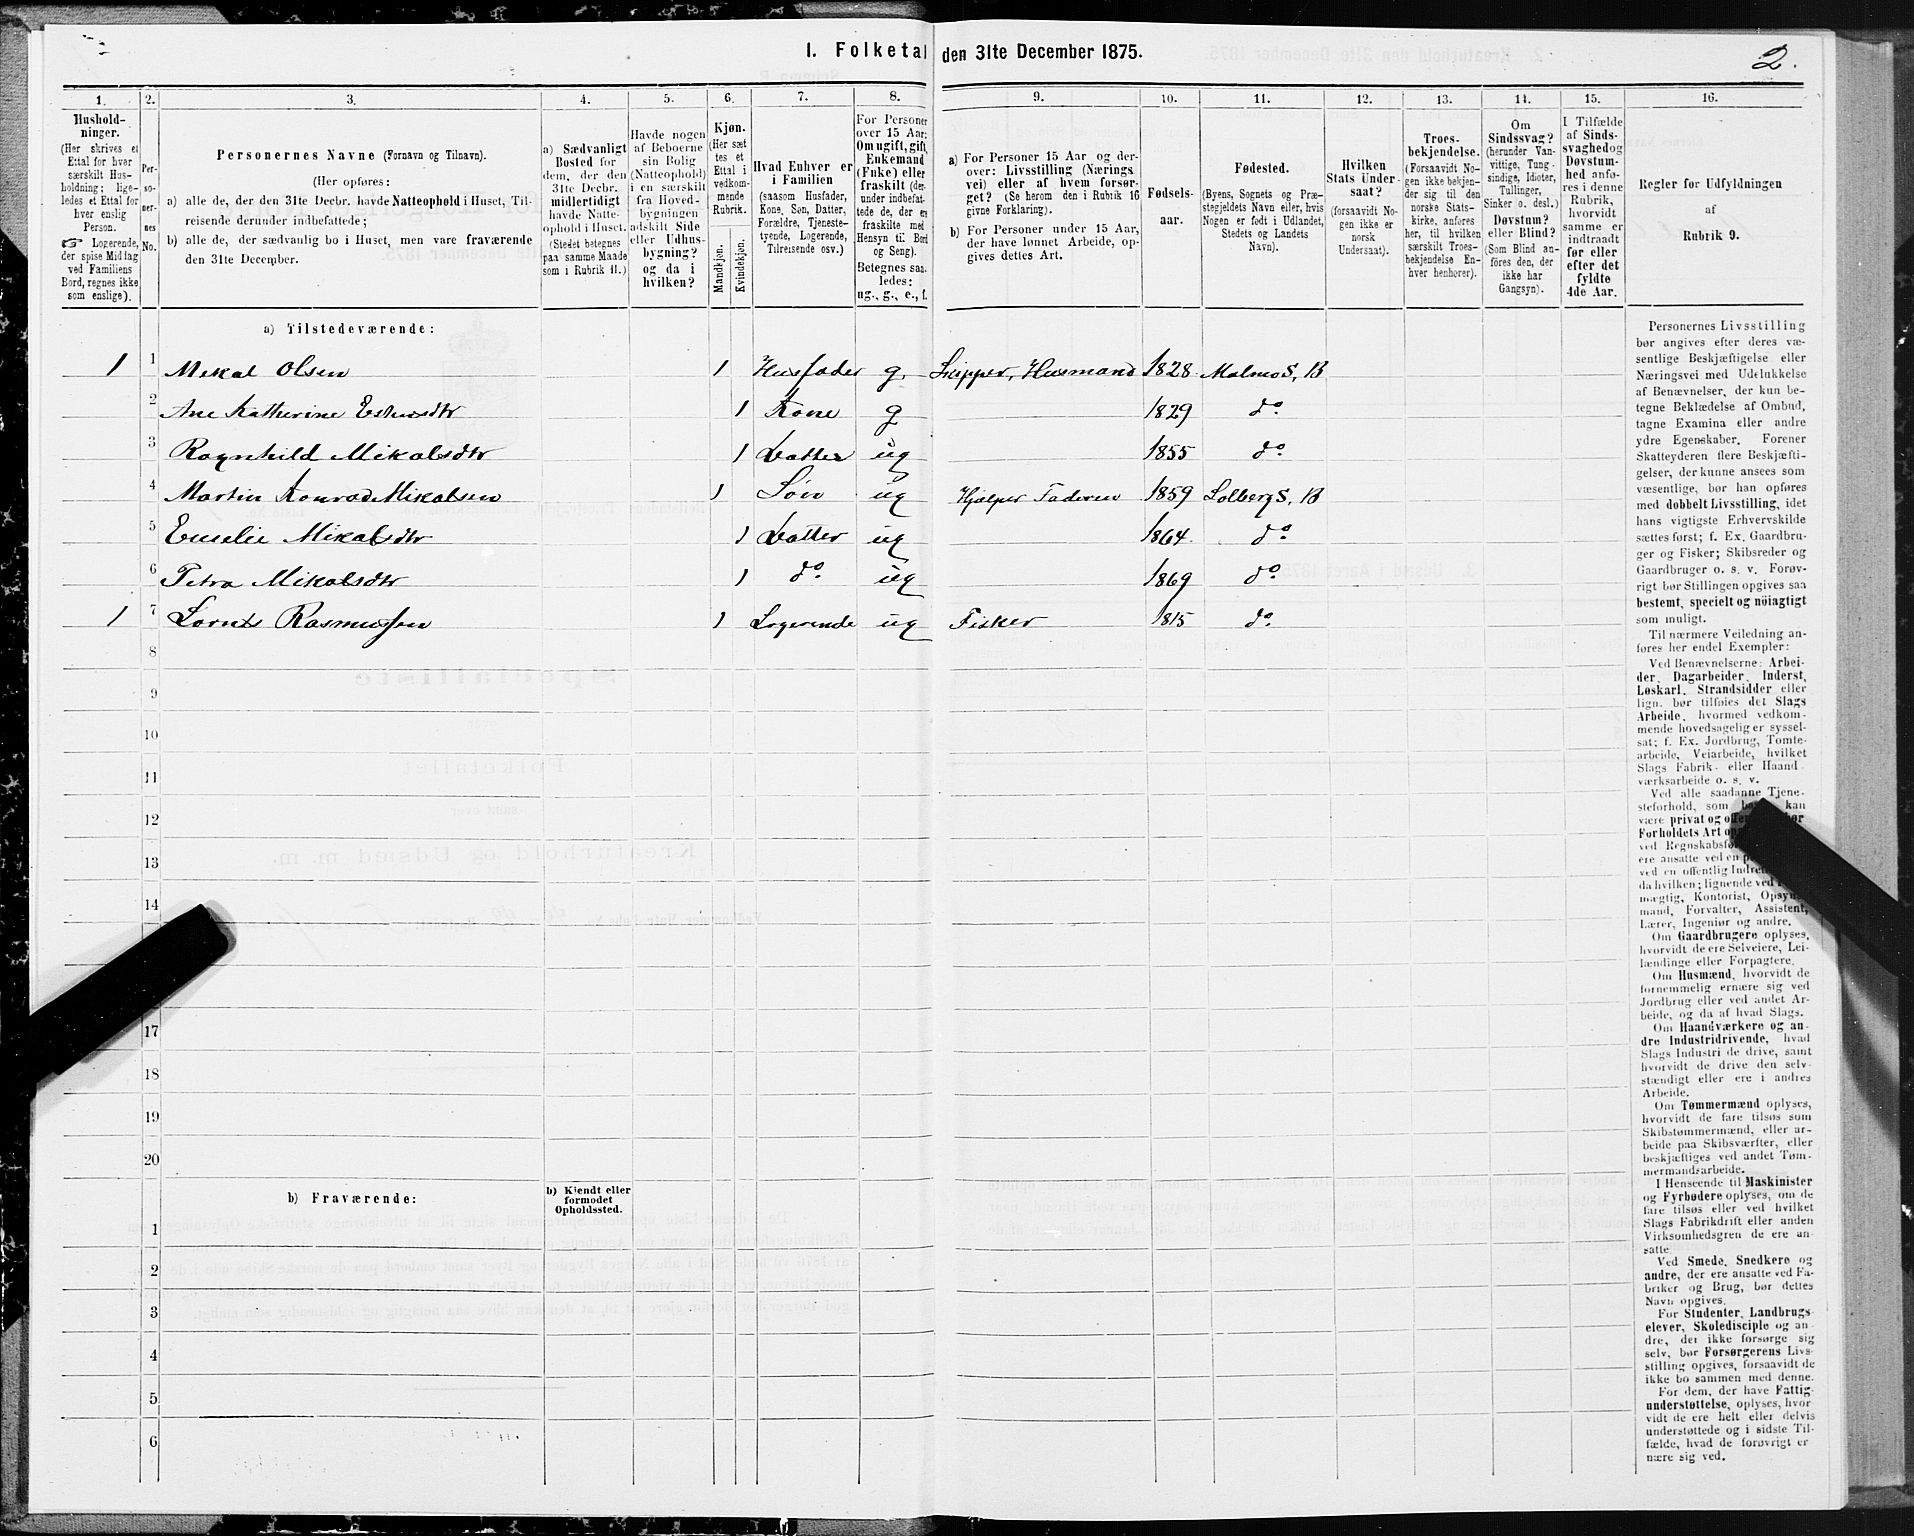 1. Folketal den 31te December 1875.
2.
1. 2. 3. 4. 5. 6. 7. 8. 9. 10. 11. 12. 13. 14. 15. 16.
Hushold-
ninger.
(Her skrives et
Ettal for hver
særskilt Hus-
holdning; lige-
ledes et Ettal for
hver enslig
Person.
☞ Logerende,
der spise Middag
ved Familiens
Bord, regnes ikke
som enslige).
Per-
so-
ner-
nes
No.
Personernes Navne (Fornavn og Tilnavn).
(Her opføres:
a) alle de, der den 31te Decbr. havde Natteophold i Huset, Til-
reisende derunder indbefattede;
b) alle de, der sædvanlig bo i Huset, men vare fraværende
den 31te December.
a) Sædvanligt
Bosted for
dem, der den
31te Decbr.
midlertidigt
havde Natte-
ophold i Huset.
(Stedet betegnes
paa samme Maade
som i Rubrik 11.)
Havde nogen
af Beboerne
sin Bolig
(Natteophold)
i en særskilt
fra Hoved-
bygningen
adskilt Side
eller Udhus-
bygning?
og da i
hvilken?
Kjøn.
(Her sæt
tes et
Ettal i
vedkom-
mende
Rubrik.
Mandkjøn.
Kvindekjøn.
Hvad Enhver er
i Familien
(saasom Husfader,
Kone, Søn, Datter,
Forældre, Tjeneste-
tyende, Logerende,
Tilreisende osv.)
For Personer
over 15 Aar:
Om ugift, gift,
Enkemand
(Enke) eller
fraskilt (der-
under indbefat-
tede de, der ere
fraskilte med
Hensyn til Bord
og Seng).
Betegnes saa-
ledes:
ug., g., e., f.
a) For Personer 15 Aar og der-
over: Livsstilling (Nærings
vei) eller af hvem forsør-
get? (Se herom den i Rubrik 16
givne Forklaring).
b) For Personer under 15 Aar,
der have lønnet Arbeide, op-
gives dettes Art.
Fødsels-
aar.
Fødested.
(Byens, Sognets og Præ-
stegjeldets Navn eller, hvis
Nogen er født i Udlandet,
Stedets og Landets
Navn).
Hvilken
Stats Under-
saat?
(forsaavidt No-
gen ikke er
norsk
Undersaat).
Troes-
bekjendelse.
(Forsaavidt No-
gen ikke bekjen-
der sig til den
norske Stats-
kirke, anføres
her, til hvilken
særskilt Troes-
bekjendelse En-
hver henhører).
Om
Sindssvag?
(herunder Van-
vittige, Tung-
sindige, Idioter,
Tullinger,
Sinker o. desl.)
Døvstum?
eller Blind?
(Som Blind an-
føres den, der
ikke har
Gangsyn).
I Tilfælde
af Sinds-
svaghed og
Døvstum-
hed anfø-
res i denne
Rubrik,
hvorvidt
samme er
indtraadt
før eller
efter det
fyldte
4de Aar.
Regler for Udfyldningen
af
Rubrik 9.
a) Tilstedeværende:
1 1 Mikal Olsen 1 Husfader g. Skipper, Husmand 1828 Malmo S, B
2 Ane Katherine Estensdtr 1 Kone g 1829 do.
3 Ragnhild Mikalsdtr 1 Datter ug 1855 do
4 Martin Konrad Mikalsen 1 Søn ug Hjælper Faderen 1859 Solberg S, B
5 Emelie Mikalsdtr 1 Datter ug 1864 do
6 Petra Mikalsdtr 1 do. ug 1869 do.
1 7 Lornts Rasmussen 1 Logerende ug Fisker 1815 do.
8
9
10
11
12
13
14
17
18
19
20
b) Fraværende:
b) Kjendt eller
formodet
Opholdssted.
1
2
3
4
5
6
Personernes Livsstilling
bør angives efter deres væ-
sentlige Beskjæftigelse eller
Næringsvei med Udelukkelse
af Benævnelser, der kun be-
tegne Beklædelse af Ombud,
tagne Examina eller andre
ydre Egenskaber. Forener
Skatteyderen flere Beskjæfti-
gelser, der kunne ansees som
væsentlige, bør han opføres
med dobbelt Livsstilling, idet
hans vigtigste Erhvervskilde
sættes først; f. Ex. Gaardbru-
ger og Fisker; Skibsreder og
Gaardbruger o. s. v. Forøv-
rigt bør Stillingen opgives saa
bestemt, specielt og nöiagtigt
som muligt.
Til nærmere Veiledning an-
føres her endel Exempler:
Ved Benævnelserne: Arbei-
der, Dagarbeider, Inderst,
Løskarl, Strandsidder eller
lign. bør tilføies det Slags
Arbeide, hvormed vedkom-
mende hovedsagelig er syssel-
sat; f. Ex. Jordbrug, Tomte-
arbeide, Veiarbeide, hvilket
Slags Fabrik- eller Haand-
værksarbeide o. s. v.
Ved alle saadanne Tjene-
steforhold, som kan
være privat og
Forholdets Art
ved
ere ansatte ved en
ved en offentlig
da hvilken; lignende ved
mægtig, Kontorist,
mand, Forvalter, Assistent,
Lærer, Ingeniør og andre.
Om Gaardbrugere oplyses,
hvorvidt de ere Selveiere, Lei-
lændinge eller Forpagtere.
Om Husmænd, hvorvidt de
fornemmelig ernære sig ved
Jordbrug eller ved andet Ar-
beide, og da af hvad Slags.
Om Haandværkere og an-
dre Industridrivende, hvad
Slags Industri de drive, samt
hvorvidt de drive den selv-
stændigt eller ere i andres
Arbeide.
Om Tømmermænd oplyses,
hvorvidt de fare tilsøs som
Skibstømmermænd, eller ar-
beide paa Skibsværfter, eller
beskjæftiges ved andet Tøm-
mermandsarbeide.
I Henseende til Maskinister
og Fyrbødere oplyses, om de
fare tilsøs eller ved hvilket
Slags Fabrikdrift eller anden
Virksomhedsgren de ere an-
satte.
Ved Smede, Snedkere og
andre, der ere ansatte ved Fa-
briker og Brug, bør dettes
Navn opgives.
For Studenter, Landbrugs-
elever, Skoledisciple og an-
dre, der ikke forsørge sig
selv, bør Forsørgerens Livs-
stilling opgives, forsaavidt de
ikke bo sammen med denne.
For dem, der have Fattig-
understøttelse, oplyses, hvor-
vidt de ere helt eller delvis
understøttede og i sidste Til-
fælde, hvad de forøvrigt er-
nære sig ved.